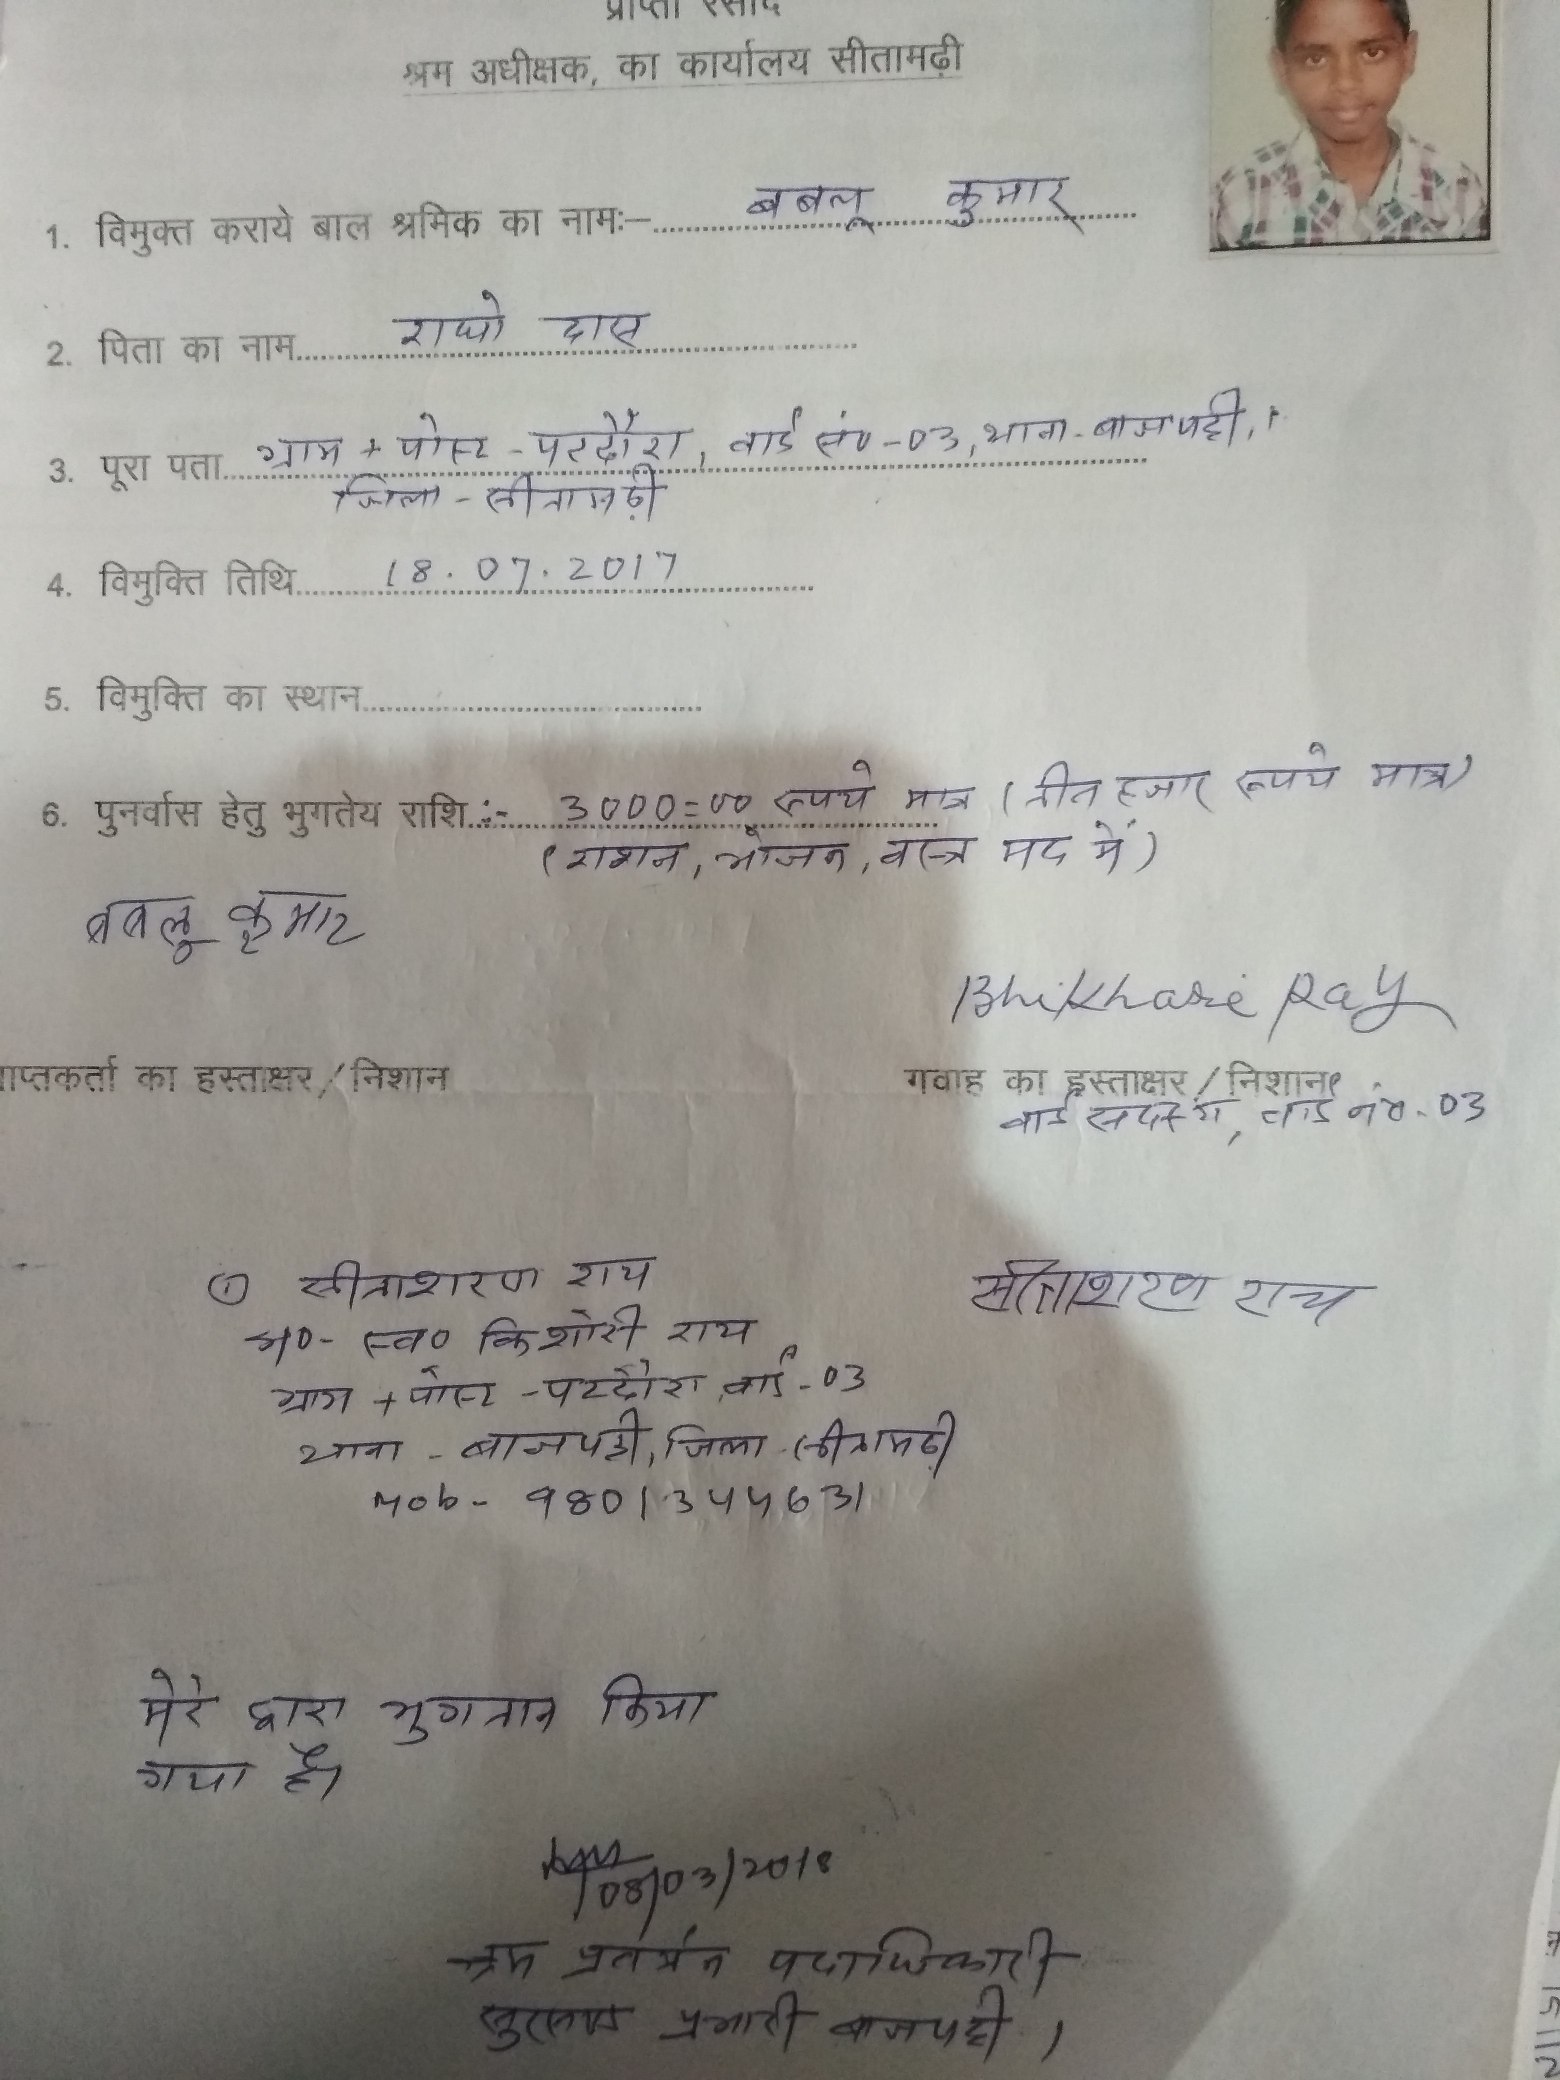 प्राप्ती रसीद
श्रम अधीक्षक, का कार्यालय सीतामढ़ी
1. विमुक्त कराये बाल श्रमिक का नामः– बबलू कुमार
2. पिता का नाम राघो दास
3. पूरा पता ग्राम + पोस्ट - पटदौरा, वार्ड सं० - 03, थाना - बाजपट्टी,
जिला - सीतामढ़ी
4. विमुक्ति तिथि 18.07.2017
5. विमुक्ति का स्थान
6. पुनर्वास हेतु भुगतेय राशि :- 3000=00 रूपये मात्र (तीन हजार रूपये मात्र)
(राशन, भोजन, वस्त्र मद में)
बबलू कुमार
Bhikhari Ray
प्राप्तकर्ता का हस्ताक्षर/निशान
गवाह का हस्ताक्षर/निशान
वार्ड सदस्य, वार्ड नं० - 03
① सीताशरण राय
सीताशरण राय
स्व० किशोरी राय
ग्राम + पोस्ट - पटदौरा, वार्ड - 03
थाना - बाजपट्टी, जिला - सीतामढ़ी
Mob - 9801344631
मेरे द्वारा भुगतान किया
गया है।
08/03/2018
श्रम प्रवर्तन पदाधिकारी
प्रभारी बाजपट्टी।